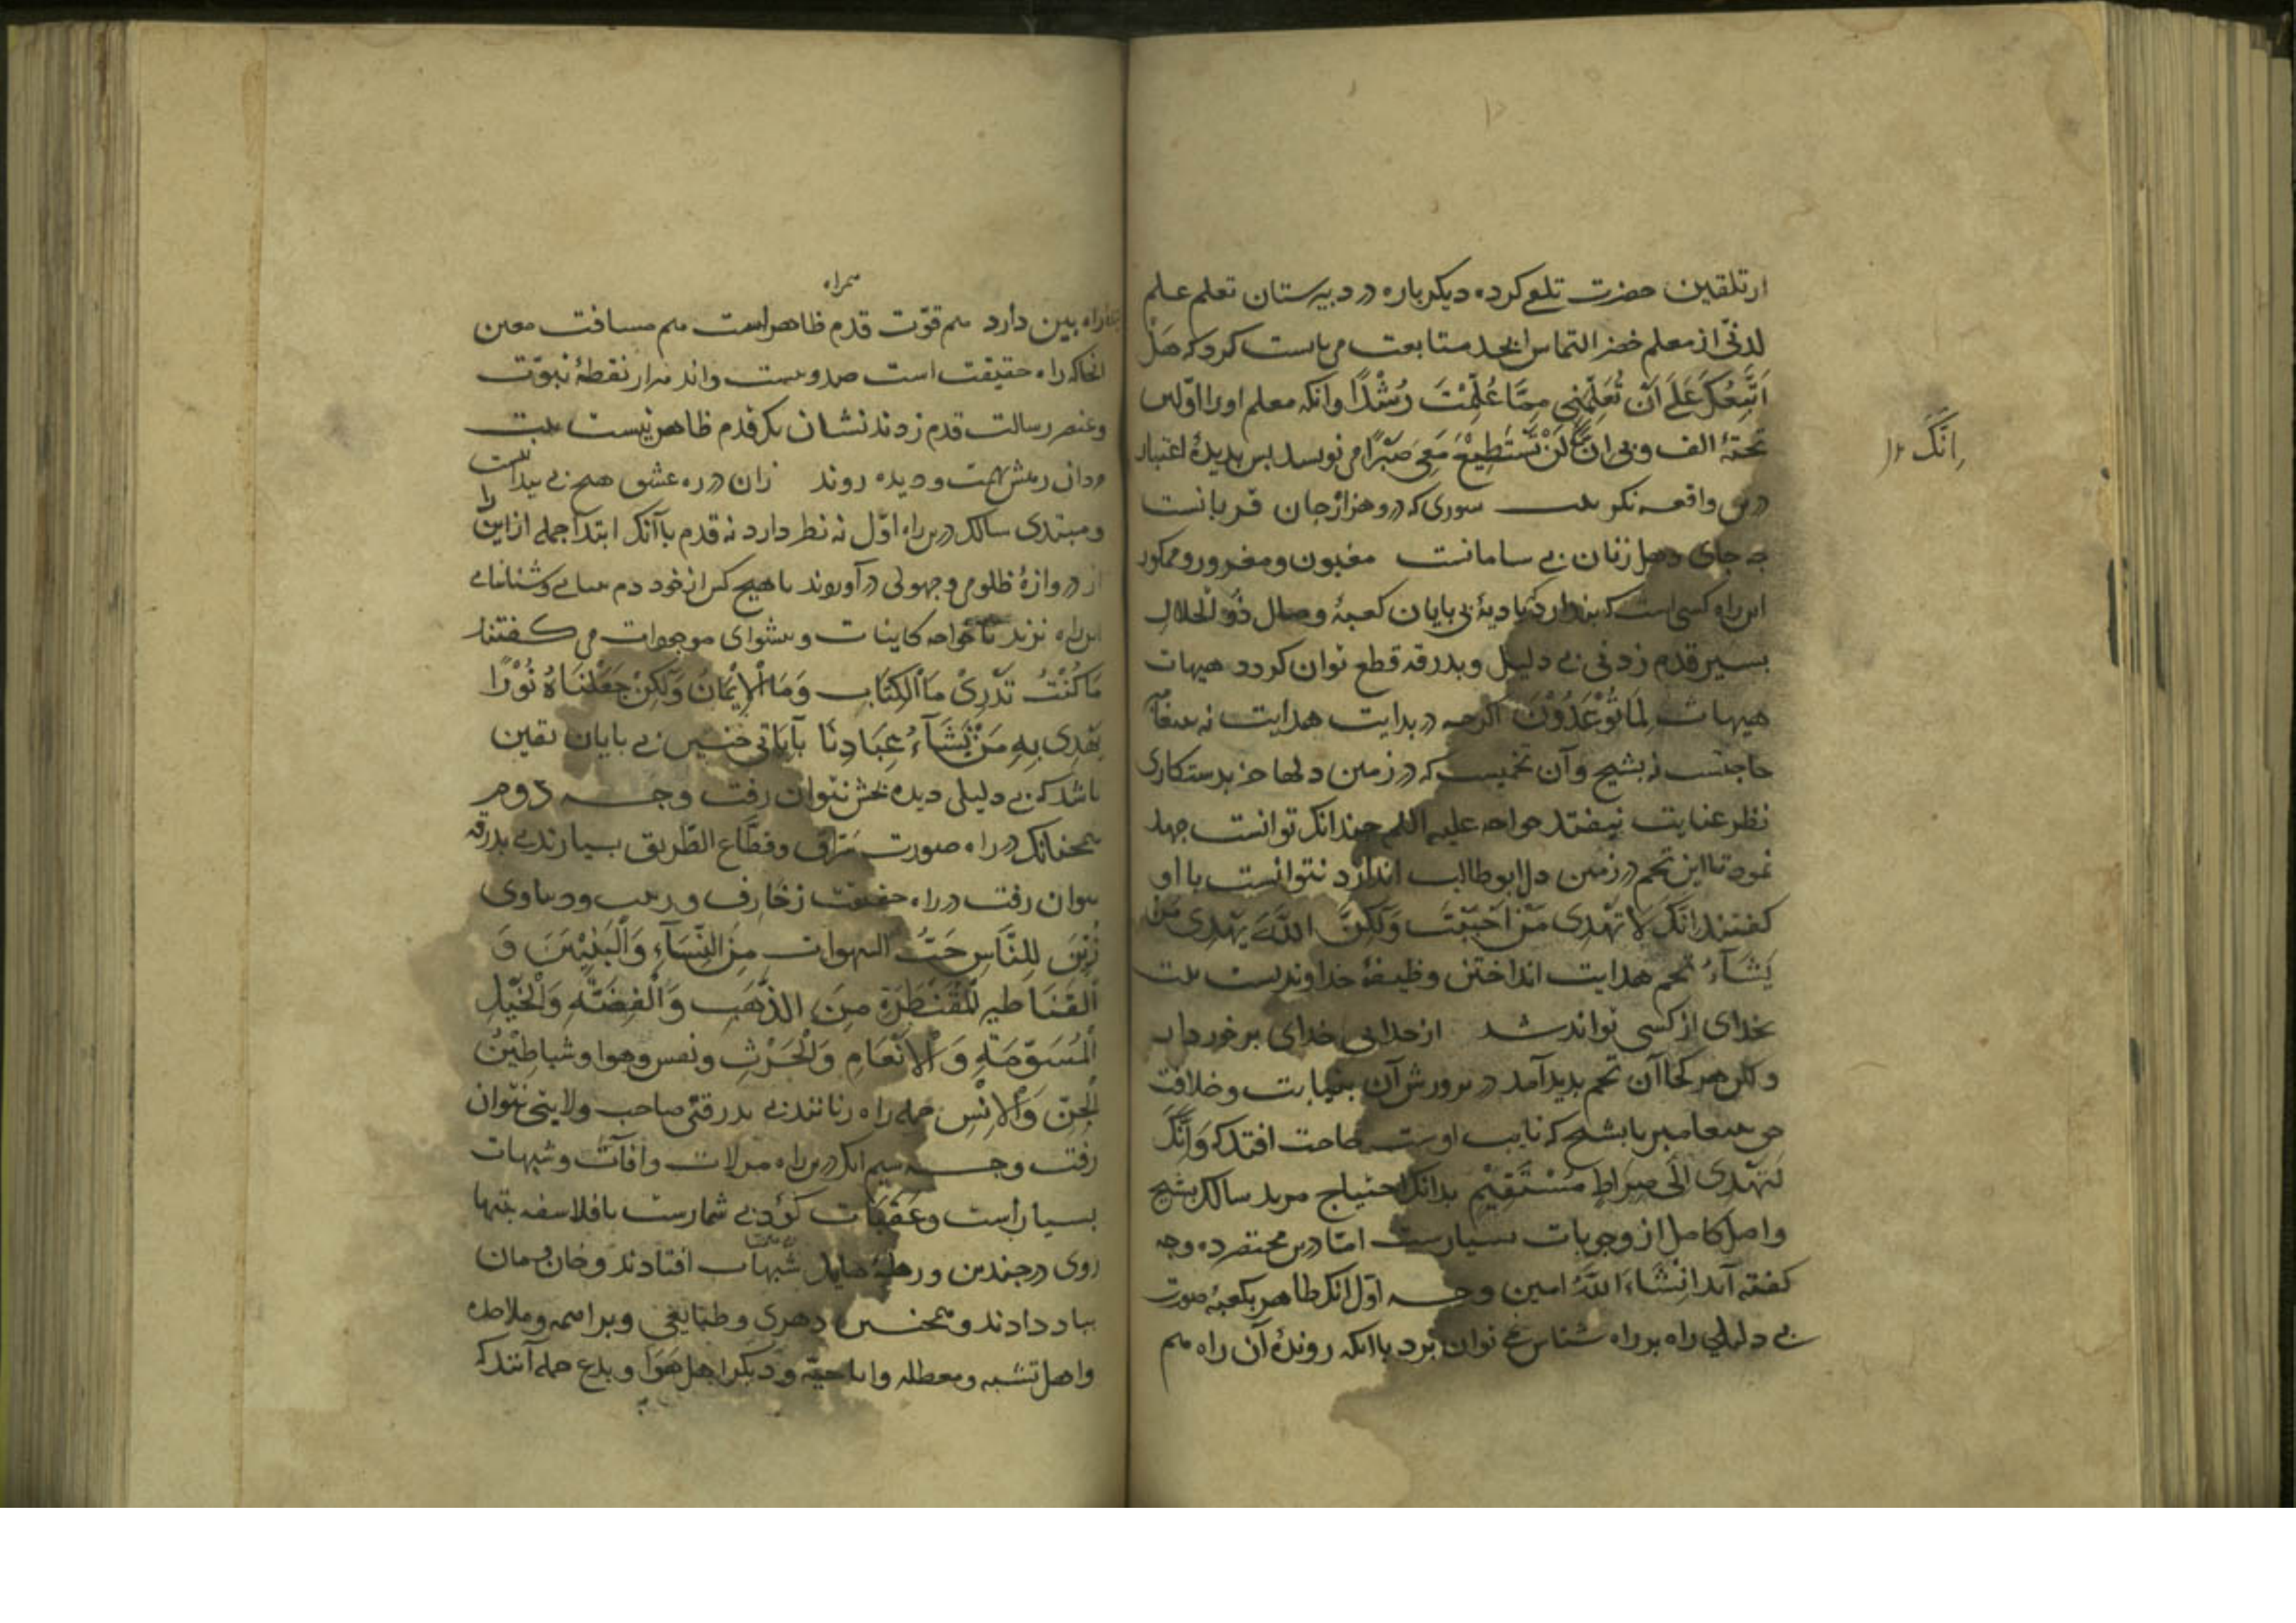 از تلقین حضرت تلقی کرده دیگر باره در دبیرستان تعلم علم
لدنی از معلم خضر التماس ابجد متابعت می بایست کرد که هَلْ
اَتَّبِعُکَ عَلَی اَنْ تُعَلِّمَنِی مِمَّا عُلِّمْتَ رُشْدًا وانکه معلم اورا اولین
تختهٔ الف و بی انَّکَ لَنْ تَسْتَطِیْعَ مَعِیَ صَبْرًا می نویسد پس بدیدهٔ اعتبار
درین واقعه نکر بیت سوری که درو هزار جان قربانست
چه جای دهل زنان بی سامانست مغبون و مغرور و ممکور
این راه کسی است که پندارد که بادیهٔ بی پایان کعبهٔ وصال ذو الجلال
بسیر قدم زدنی بی دلیل و بدرقه قطع توان کرد هیهات
هیهات لِمَا تُوْعَدُوْنَ اکرچه در بدایت هدایت نه بپیغامبر
حاجتست نه بشیخ وآن تخمیست که در زمین دلها جز بدستکاری
نظر عنایت نیفتد خواجه علیه السلم چندانک توانست جهد
نمود تا این تخم در زمین دل ابوطالب اندازد نتوانست با او
کفتند اِنَّکَ لَا تَهْدِی مَنْ اَحْبَبْتَ وَلٰکِنَّ اللّٰهَ یَهْدِی مَنْ
یَشَآءُ تخم هدایت انداختن وظیفهٔ خداوندیست بیت
بخدای از کسی تواند شد از خدایی خدای برخوردار
ولکن هر کجا آن تخم پدید آمد در پرورش آن بنیابت و خلافت
حق پیغامبر یا بشیخ که نایب اوست حاجت افتد که وَاِنَّکَ
لَتَهْدِی اِلَی صِرَاطٍ مُسْتَقِیْمٍ بدانک احتیاج مرید سالک بشیخ
واصل کامل از وجوهات بسیارست امّا درین مختصر ده وجه
کفته آید اِنْشَاءَ اللّٰهُ امین وجه اوّل انک ظاهر بکعبهٔ صورت
بی دلیلی راه بر راه شناس نمی توان برد با انکه روندهٔ آن راه هم
اِنَّکَ
همراه
راه بین دارد هم قوّت قدم ظاهر است هم مسافت معین
انجا که راه حقیقت است صد و بیست و اند هزار نقطهٔ نبوّت
وعنصر رسالت قدم زدند نشان یک قدم ظاهر نیست بیت
مردان رهش بهمت و دیده روند زان در ره عشق هیچ پی پیدا نیست
ومبتدی سالک درین راه اوّل نه نظر دارد نه قدم با آنک ابتدا جمله از این
را
از دروازهٔ ظلومی و جهولی در آوردند تا هیچ کس از خود دم بینایی و شناسایی
این راه نزند تا خواجه کاینات و پیشوای موجودات می کفتند
مَا کُنْتُ تَدْرِیْ مَا الْکِتَابُ وَمَا الْاِیْمَانُ وَلٰکِنْ جَعَلْنَاهُ نُوْرًا
نَهْدِی بِهِ مَنْ نَشَآءُ عِبَادِنَا بیابانی چنین بی پایان یقین
باشد که بی دلیلی دیده بخش نتوان رفت وجه دوم
همچنانک در راه صورت سُرّاق وقطّاع الطّریق بسیارند بی بدرقه
نتوان رفت در راه حقیقت زخارف و زینت دنیاوی
زُیِّنَ لِلنَّاسِ حُبُّ الشهوات مِنَ النِّسَآءِ وَالْبَنِیْنَ وَ
الْقَنَاطِیرِ الْمُقَنْطَرَةِ مِنَ الذَّهَبِ وَالْفِضَّةِ وَالْخَیْلِ
الْمُسَوَّمَةِ وَالْاَنْعَامِ وَالْحَرْثِ ونفس وهوا و شیاطین
الْجِنّ وَالْاِنْسِ جمله راه زنانند بی بدرقهٔ صاحب ولایتی نتوان
رفت وجه سیم انک درین راه مزلات وآفات وشبهات
بسیار است وعَقَبَات کؤد بی شمارست تا فلاسفه بتنها
روی در چندین ورطهٔ هایل شبهات افتادند و خان و مان
بباد دادند و همچنین دهری و طبایعی وبراهمه وملاحده
واهل تشبیه ومعطله واباحیّه ودیگر اهل هَوَا و بدع جمله آنند که